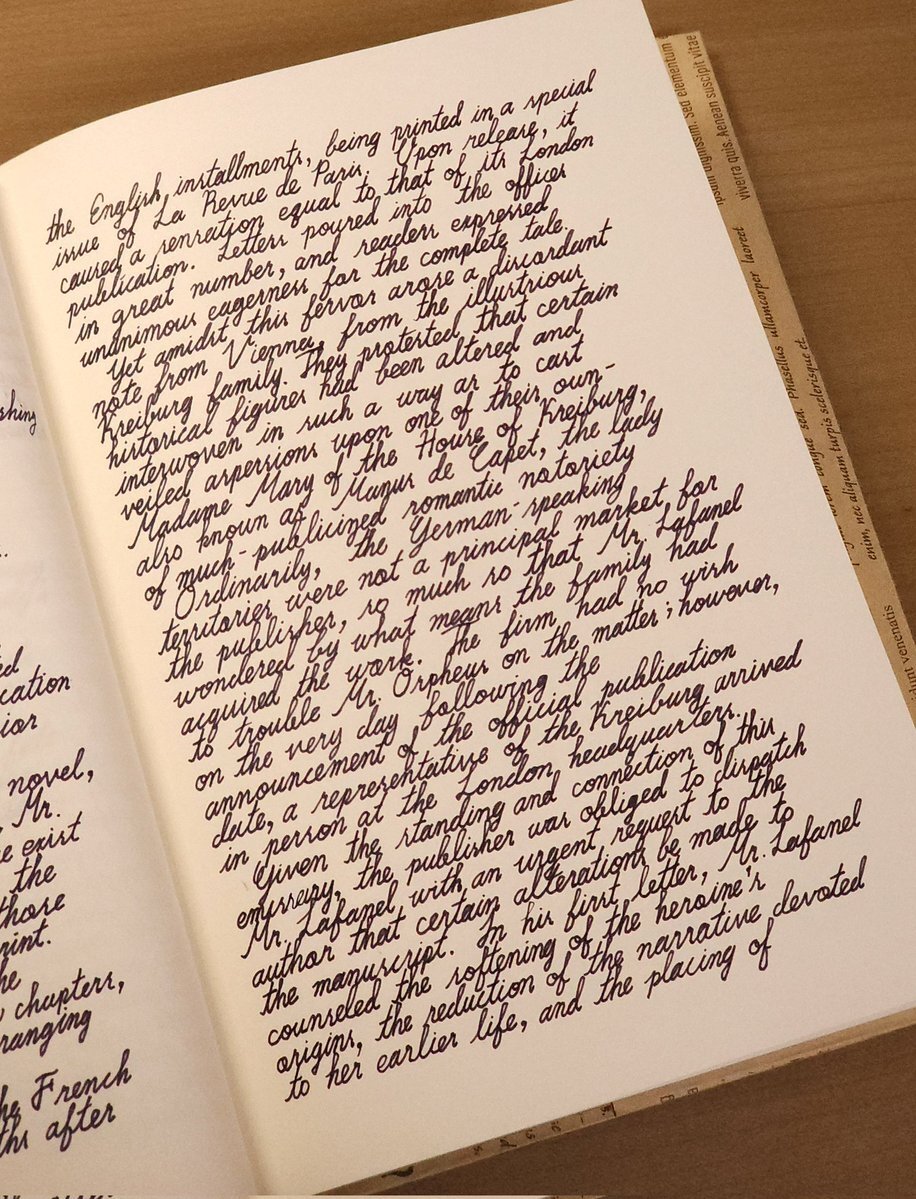 shing
..
ed
cation
ior
novel,
Mr.
e exist
the
those
rint.
he
chapters,
ranging
he French
ths after
the English installments, being printed in a special
issue of La Revue de Paris. Upon release, it
caused a sensation equal to that of its London
publication. Letters poured into the offices
in great number, and readers expressed
unanimous eagerness for the complete tale.
Yet amidst this fervor arose a discordant
note from Vienna, from the illustrious
Kreiburg family. They protested that certain
historical figures had been altered and
interwoven in such a way as to cast
veiled aspersions upon one of their own-
Madame Mary of the House of Kreiburg,
also known as Manus de Capet, the lady
of much-publicized romantic notoriety
Ordinarily, the German-speaking
territories were not a principal market for
the publisher, so much so that Mr. Lafanel
wondered by what means the family had
acquired the work. The firm had no wish
to trouble Mr. Orpheus on the matter; however,
on the very day following the
announcement of the official publication
date, a representative of the Kreiburg arrived
in person at the London headquarters.
Given the standing and connection of this
emissary, the publisher was obliged to dispatch
Mr. Lafanel with an urgent request to the
author that certain alterations be made to
the manuscript. In his first letter, Mr. Lafanel
counseled the softening of the heroine's
origins, the reduction of the narrative devoted
to her earlier life, and the placing of
ipsum dignissim. Sed elementum
viverra quis. Aenean suscipit vitae
congue sed. Phasellus ullamcorper laoreet
enim, nec aliquam turpis scelerisque et.
venenatis